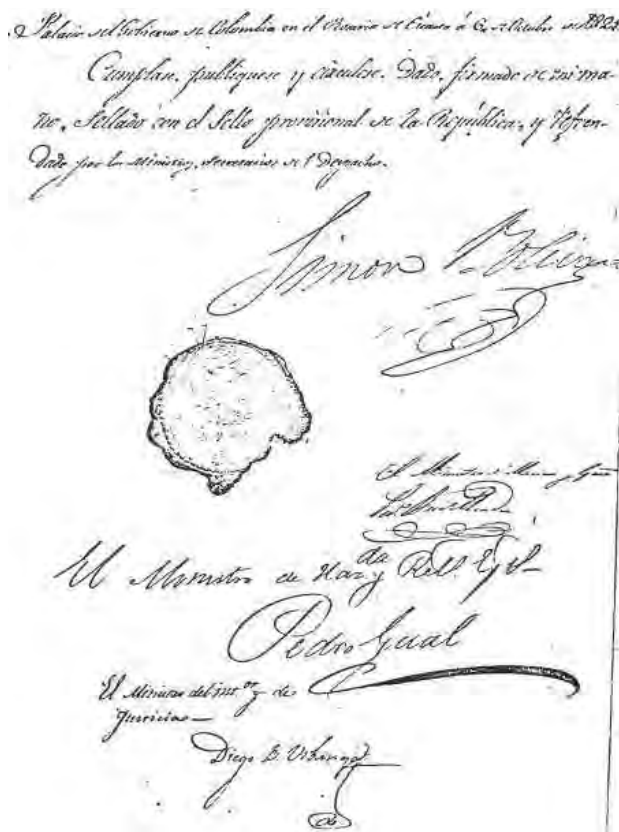 Palacio del Gobierno de Colombia en el Rosario de Cúcuta á 6,, de Octubre de 1821.
Cumplase, publiquese y circúlese. Dado, firmado de mi ma-
no, Sellado con el Sello provisional de la República, y Refren-
dado por los Ministros, Secretarios del Despacho.
Simon Bolivar
El Ministro de Marina y Guerra
El Ministro de Haz.da y Rel.s Ext.s
Pedro Gual
El Ministro del int.or y de
Justicia—
Diego B. Urbaneja